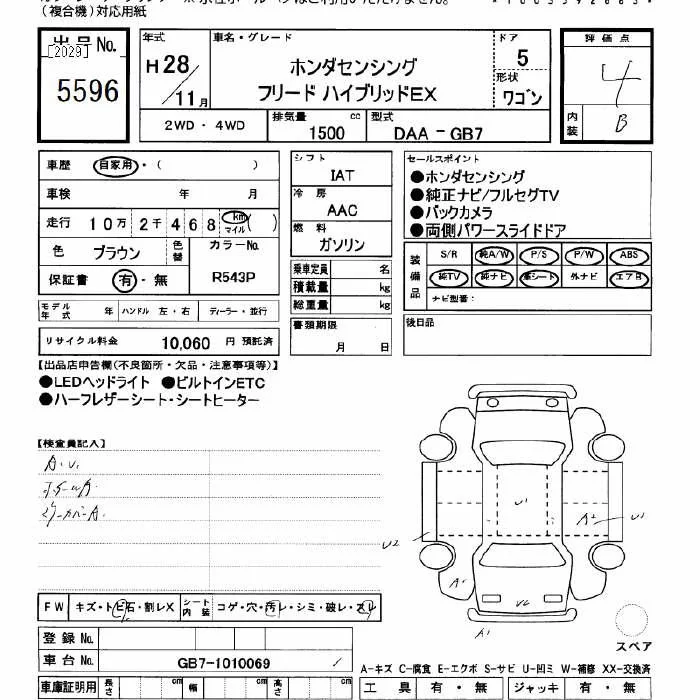 (複合機)対応用紙
出品No.
[2029]
5596
年式
H28
11月
車名・グレード
ホンダセンシング
フリード ハイブリッドEX
ドア
5
形状
ワゴン
評価点
4
内装
B
2WD ・ 4WD
排気量
1500 cc
型式
DAA - GB7
車歴 自家用・( )
車検 年 月
走行 10万 2千 4 6 8 km マイル ( )
色 ブラウン 色替
カラーNo.
R543P
保証書 有・無
モデル年式 年 ハンドル 左・右 ディーラー・並行
リサイクル料金 10,060 円 預託済
シフト
IAT
冷房
AAC
燃料
ガソリン
乗車定員 名
積載量 kg
総重量 kg
書類期限
月 日
セールスポイント
●ホンダセンシング
●純正ナビ/フルセグTV
●バックカメラ
●両側パワースライドドア
装備品
S/R 純A/W P/S P/W ABS
純TV 純ナビ 革シート 外ナビ エアB
ナビ型番:
後日品
【出品店申告欄(不良箇所・欠品・注意事項等)】
●LEDヘッドライト ●ビルトインETC
●ハーフレザーシート・シートヒーター
【検査員記入】
A.U.
U1
A2
U1
U2
A1
FW キズ・トビ石・割レX
シート内装 コゲ・穴・汚レ・シミ・破レ・スレ
登録No.
車台No. GB7-1010069
車庫証明用 長さ cm 幅 cm 高さ cm
スペア
A-キズ C-腐食 E-エクボ S-サビ U-凹ミ W-補修 XX-交換済
工具 有・無 ジャッキ 有・無